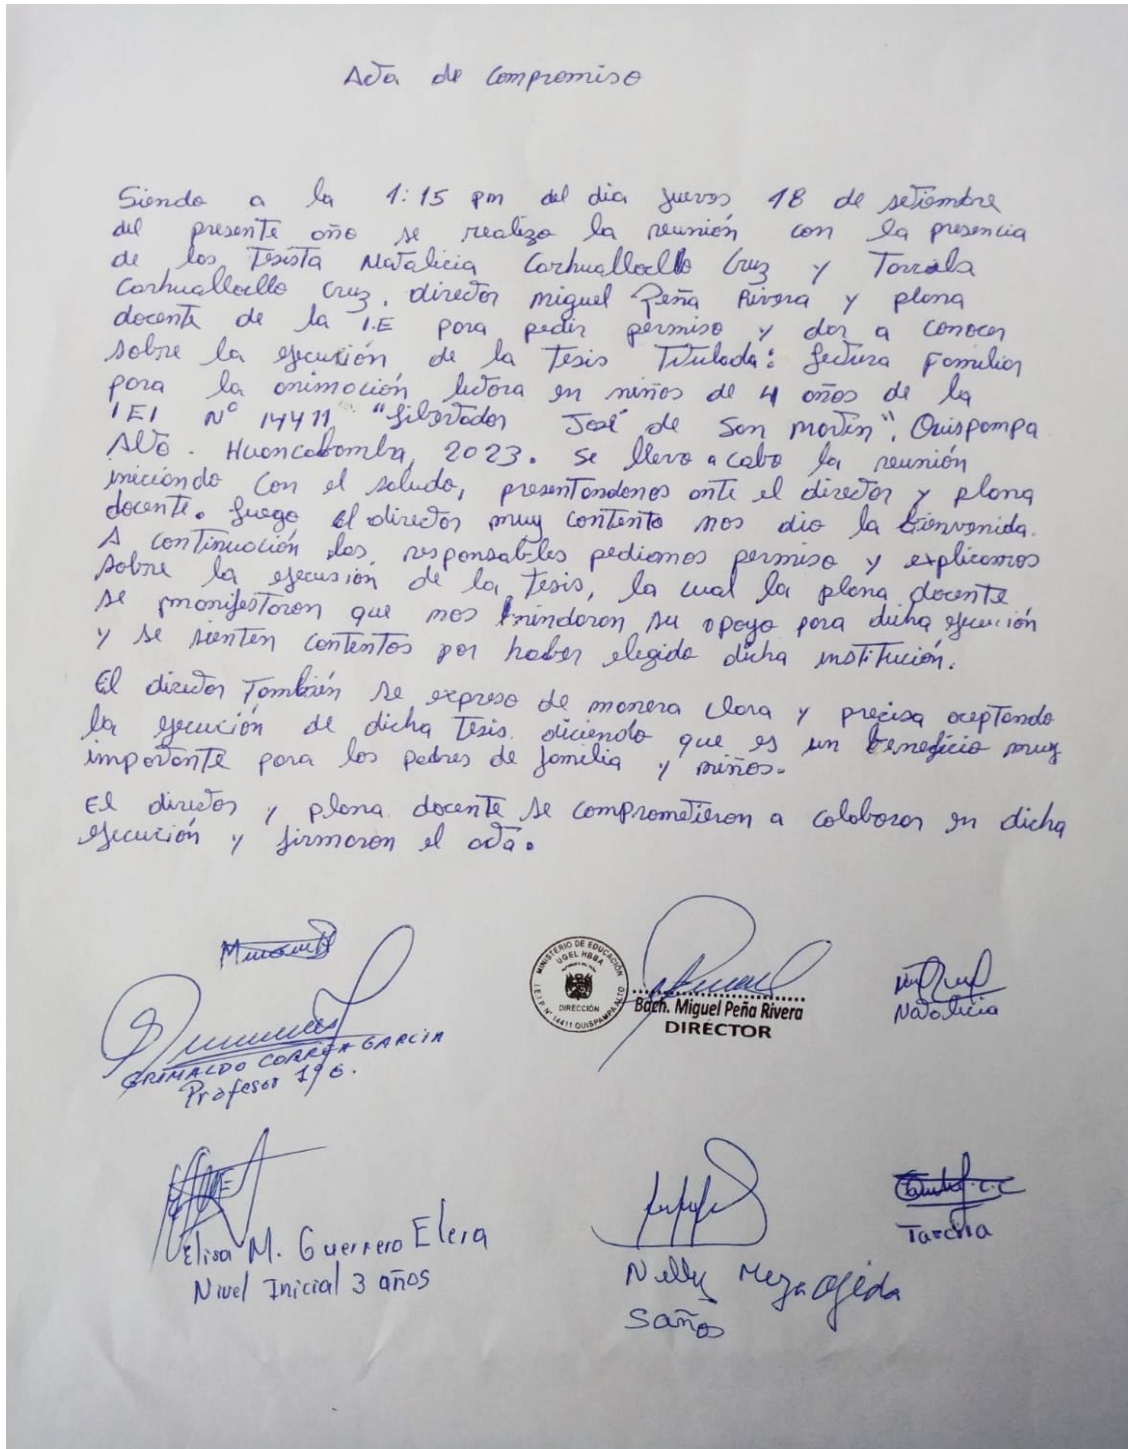 Acta de Compromiso
Siendo a la 1:15 pm del dia jueves 18 de setiembre
del presente año se realizo la reunión con la presencia
de los Tesista Natalicia Carhuallocllo Cruz y Tarcila
Carhuallocllo Cruz, director miguel Peña Rivera y plana
docente de la I.E para pedir permiso y dar a conocer
sobre la ejecución de la Tesis Titulada: Lectura Familiar
para la animación lectora en niños de 4 años de la
IEI N° 14411 "Libertador José de San martín", Quispampa
Alto. Huancabamba, 2023. Se llevo a cabo la reunión
iniciando con el saludo, presentandonos ante el director y plana
docente. Luego el director muy contento nos dio la bienvenida.
A continuación las responsables pedimos permiso y explicamos
sobre la ejecusión de la tesis, la cual la plana docente
se manifestaron que nos brindaron su apoyo para dicha ejecución
y se sienten contentos por haber elegido dicha institución.
El director También se expreso de manera clara y precisa aceptando
la ejecución de dicha Tesis. diciendo que es un beneficio muy
importante para los padres de familia y niños.
El director y plana docente se comprometieron a colaborar en dicha
ejecución y firmaron el acta.
MINISTERIO DE EDUCACIÓN
UGEL HBBA
DIRECCIÓN
I.E.I.P N° 14411 QUISPAMPA ALTO
Bach. Miguel Peña Rivera
DIRECTOR
Natalicia
GRIMALDO CORREA GARCIA
Profesor 1° G.
Elisa M. Guerrero Elera
Nivel Inicial 3 años
Nelly Meza Ojeda
5 años
Tarcila